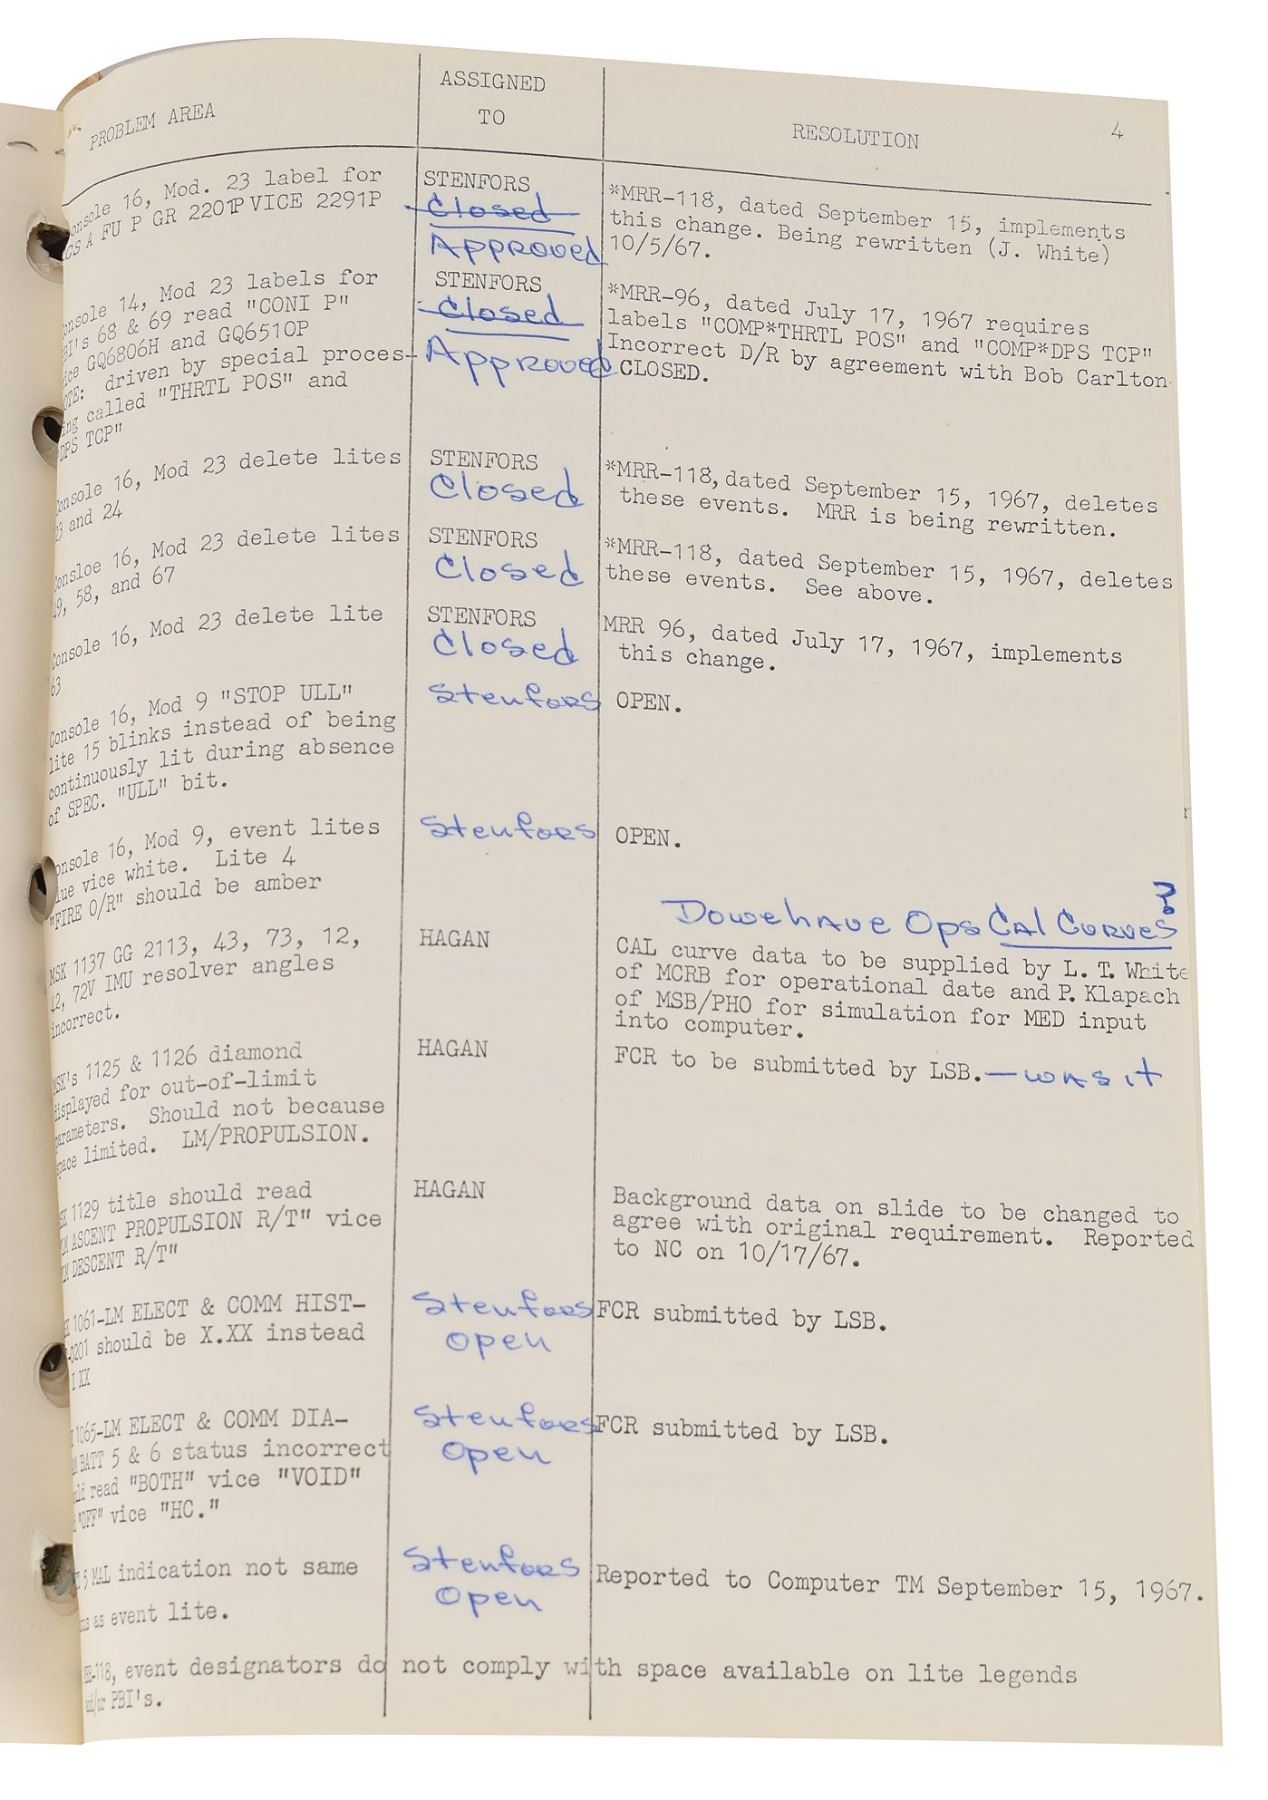 PROBLEM AREA
ASSIGNED
TO
RESOLUTION
4
onsole 16, Mod. 23 label for
CS A FU P GR 2201P VICE 2291P
STENFORS
Closed
Approved
*MRR-118, dated September 15, implements
this change. Being rewritten (J. White)
10/5/67.
onsole 14, Mod 23 labels for
BI's 68 & 69 read "CONI P"
ice GQ6806H and GQ6510P
OTE: driven by special proces-
ing called "THRTL POS" and
DPS TCP"
STENFORS
Closed
Approved
*MRR-96, dated July 17, 1967 requires
labels "COMP*THRTL POS" and "COMP*DPS TCP"
Incorrect D/R by agreement with Bob Carlton
CLOSED.
onsole 16, Mod 23 delete lites
3 and 24
STENFORS
Closed
*MRR-118, dated September 15, 1967, deletes
these events. MRR is being rewritten.
onsloe 16, Mod 23 delete lites
49, 58, and 67
STENFORS
Closed
*MRR-118, dated September 15, 1967, deletes
these events. See above.
onsole 16, Mod 23 delete lite
63
STENFORS
Closed
MRR 96, dated July 17, 1967, implements
this change.
Console 16, Mod 9 "STOP ULL"
lite 15 blinks instead of being
continuously lit during absence
of SPEC. "ULL" bit.
Stenfors
OPEN.
onsole 16, Mod 9, event lites
lue vice white. Lite 4
"FIRE O/R" should be amber
Stenfors
OPEN.
Do we have Ops Cal Curves?
MSK 1137 GG 2113, 43, 73, 12,
42, 72V IMU resolver angles
incorrect.
HAGAN
CAL curve data to be supplied by L. T. White
of MCRB for operational date and P. Klapach
of MSB/PHO for simulation for MED input
into computer.
MSK's 1125 & 1126 diamond
displayed for out-of-limit
parameters. Should not because
space limited. LM/PROPULSION.
HAGAN
FCR to be submitted by LSB. — was it
SK 1129 title should read
M ASCENT PROPULSION R/T" vice
M DESCENT R/T"
HAGAN
Background data on slide to be changed to
agree with original requirement. Reported
to NC on 10/17/67.
1061-LM ELECT & COMM HIST-
-0201 should be X.XX instead
XX
Stenfors
Open
FCR submitted by LSB.
1065-LM ELECT & COMM DIA-
BATT 5 & 6 status incorrect
uld read "BOTH" vice "VOID"
"OFF" vice "HC."
Stenfors
Open
FCR submitted by LSB.
5 MAL indication not same
as event lite.
Stenfors
Open
Reported to Computer TM September 15, 1967.
-118, event designators do not comply with space available on lite legends
and/or PBI's.